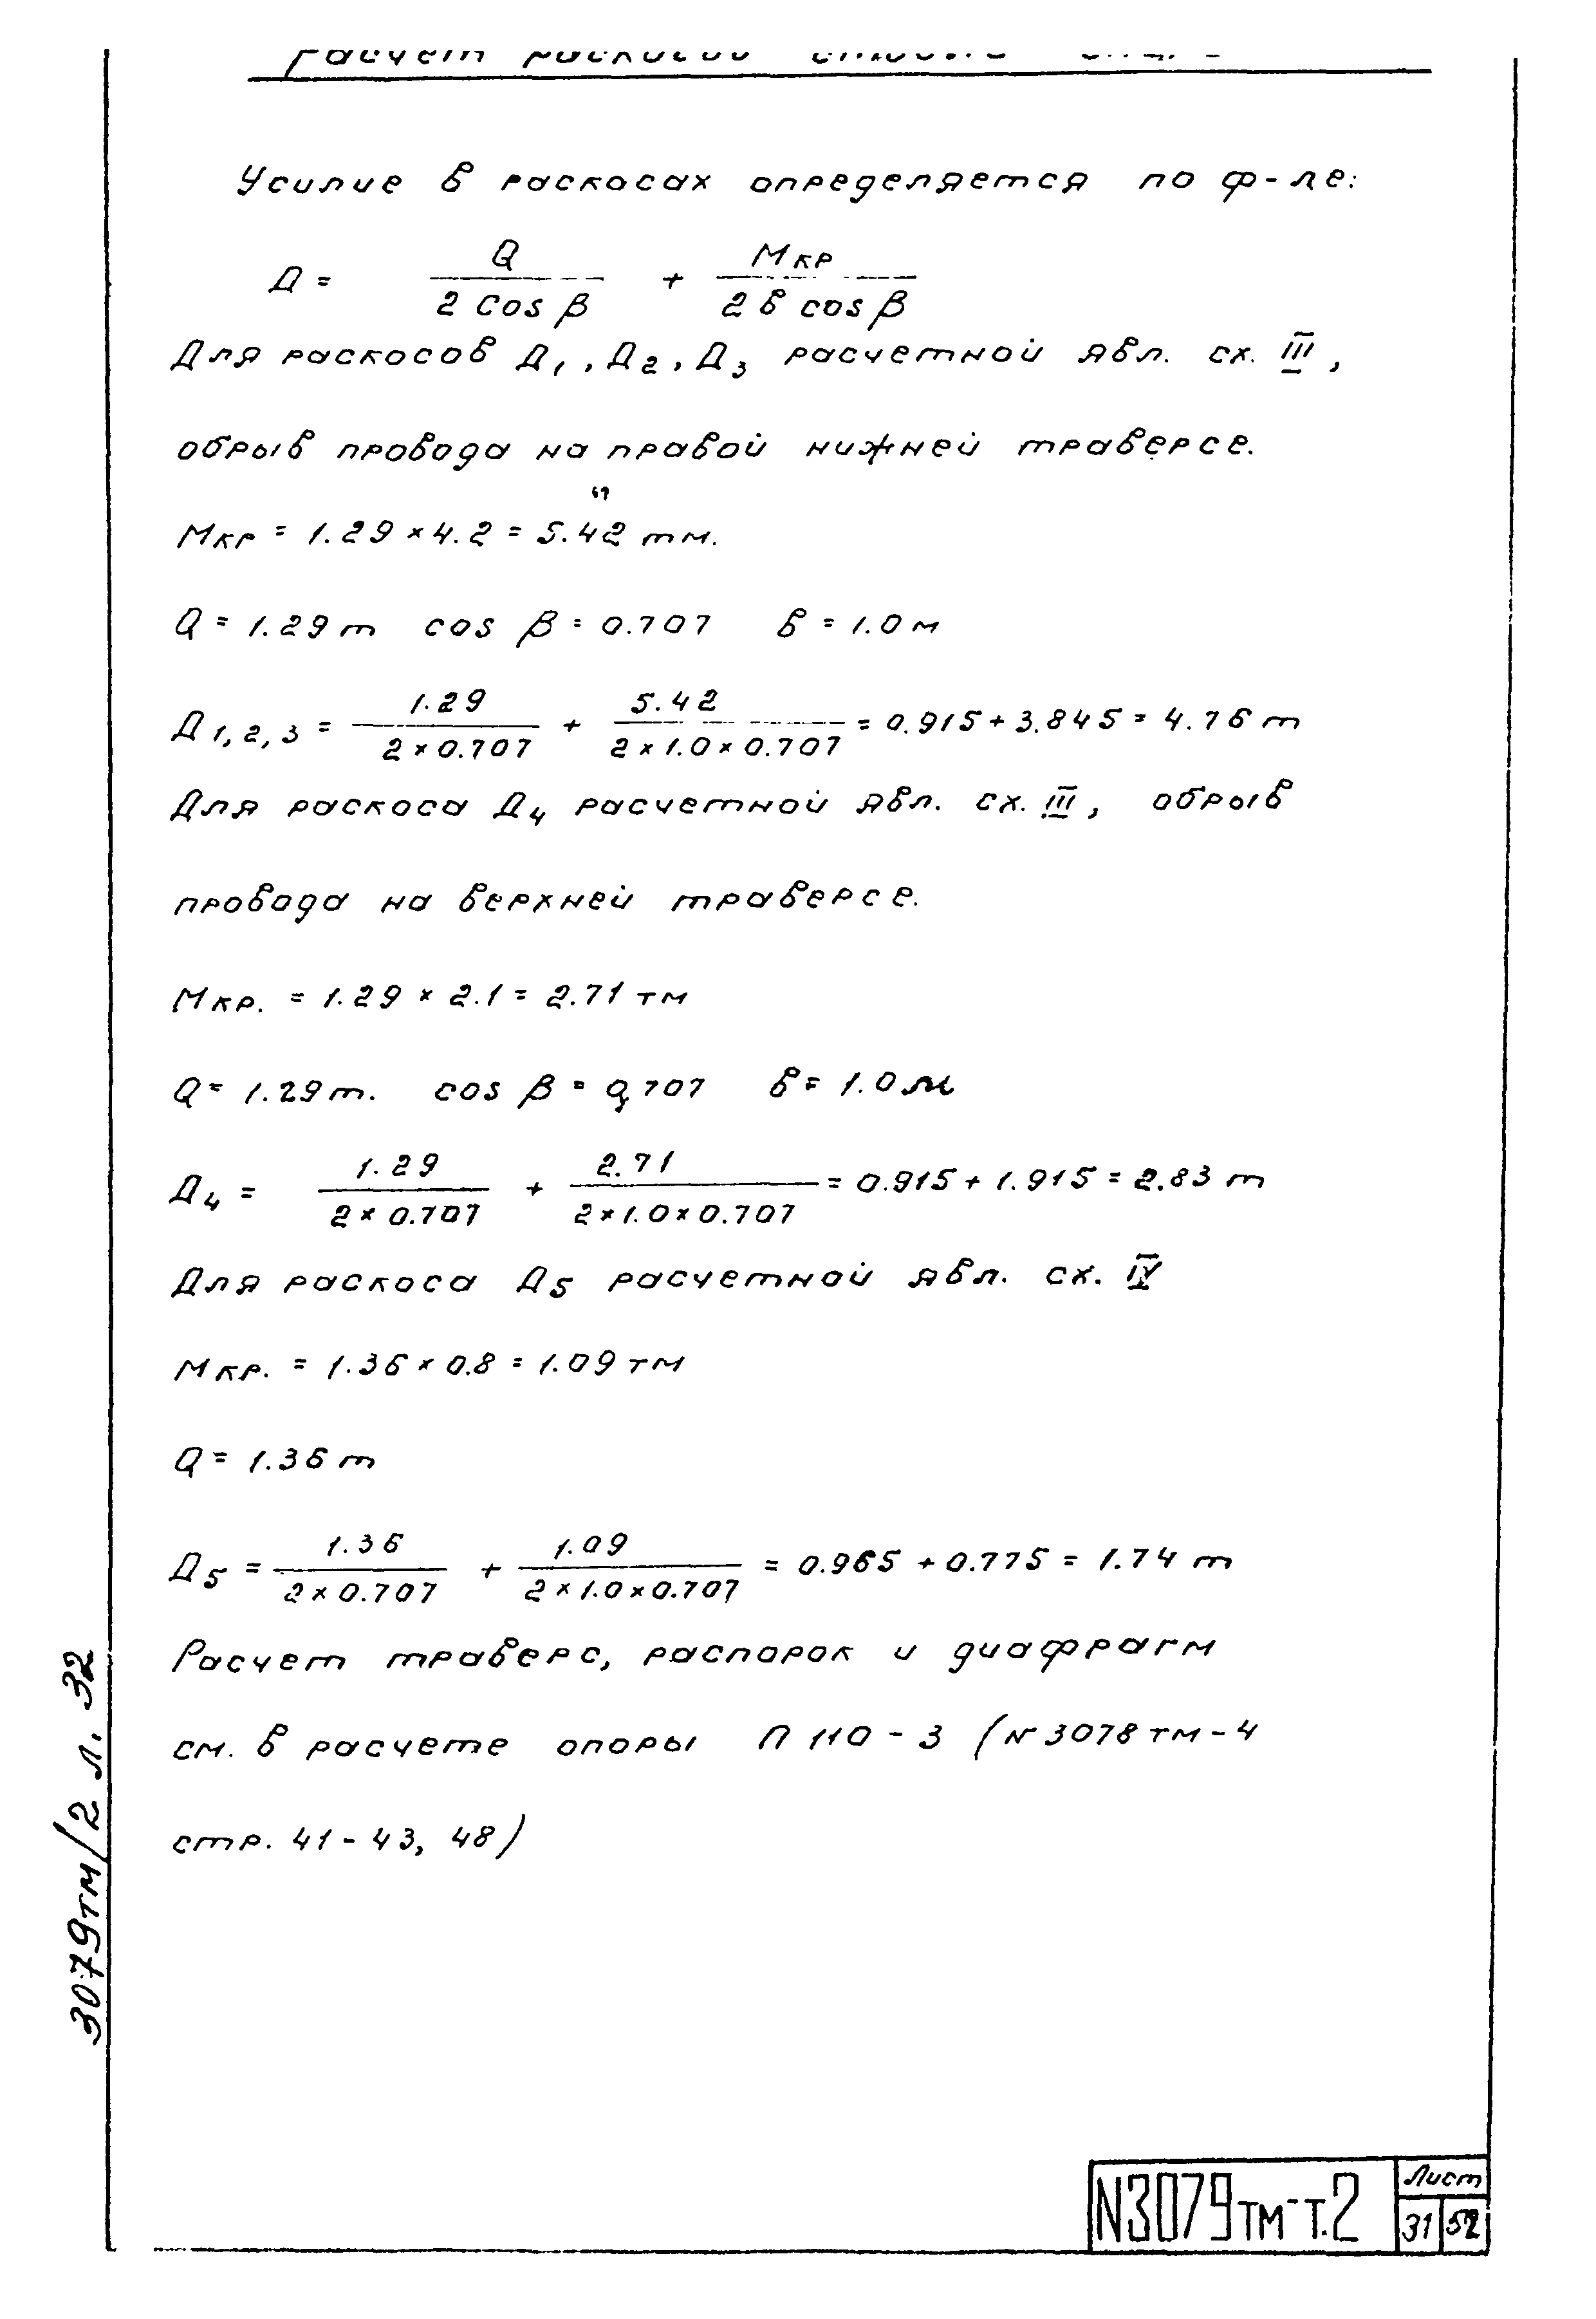 Расчет раскосов
Усилие в раскосах определяется по ф-ле:
Д = Q / 2 cos β + Мкр / 2 в cos β
Для раскосов Д1, Д2, Д3 расчетной явл. сх. III,
обрыв провода на правой нижней траверсе.
Мкр = 1.29 × 4.2 = 5.42 тм.
Q = 1.29 т cos β = 0.707 в = 1.0 м
Д1,2,3 = 1.29 / 2 × 0.707 + 5.42 / 2 × 1.0 × 0.707 = 0.915 + 3.845 = 4.76 т
Для раскоса Д4 расчетной явл. сх. III, обрыв
провода на верхней траверсе.
Мкр. = 1.29 × 2.1 = 2.71 тм
Q = 1.29 т. cos β = 0,707 в = 1.0 м
Д4 = 1.29 / 2 × 0.707 + 2.71 / 2 × 1.0 × 0.707 = 0.915 + 1.915 = 2.83 т
Для раскоса Д5 расчетной явл. сх. IV
Мкр. = 1.36 × 0.8 = 1.09 тм
Q = 1.36 т
Д5 = 1.36 / 2 × 0.707 + 1.09 / 2 × 1.0 × 0.707 = 0.965 + 0.775 = 1.74 т
Расчет траверс, распорок и диафрагм
см. в расчете опоры П 110 - 3 (N 3078 тм - 4
стр. 41 - 43, 48)
3079тм/2 л. 32
N3079тм-т.2
Лист
31 52